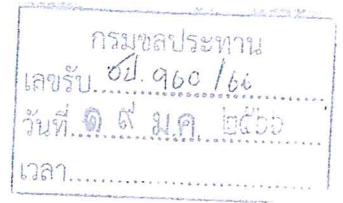 กรมชลประทาน
เลขรับ ชป. ๑๖๐ /๖๖
วันที่ ๑ ๙ ม.ค. ๒๕๖๖
เวลา